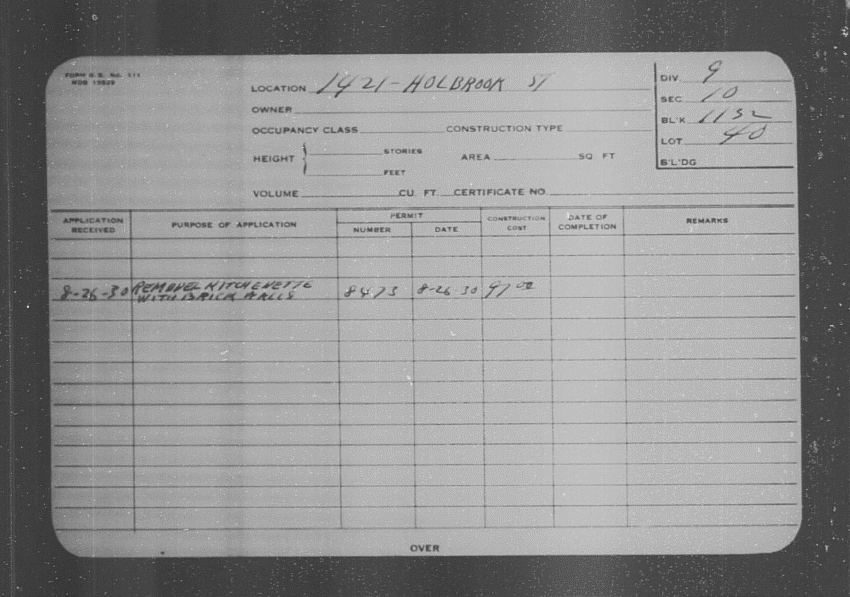 FORM B.B. No. 111
LOCATION 1421 - HOLBROOK ST
OWNER
OCCUPANCY CLASS CONSTRUCTION TYPE
HEIGHT STORIES AREA SQ FT
FEET
VOLUME CU. FT. CERTIFICATE NO.
DIV. 9
SEC 10
BL'K 1132
LOT 40
B'L'DG
APPLICATION RECEIVED PURPOSE OF APPLICATION PERMIT CONSTRUCTION COST DATE OF COMPLETION REMARKS
NUMBER DATE
8-26-30 KITCHENETTE 8473 8-26-30 97 00
WITH BRICK WALLS
OVER